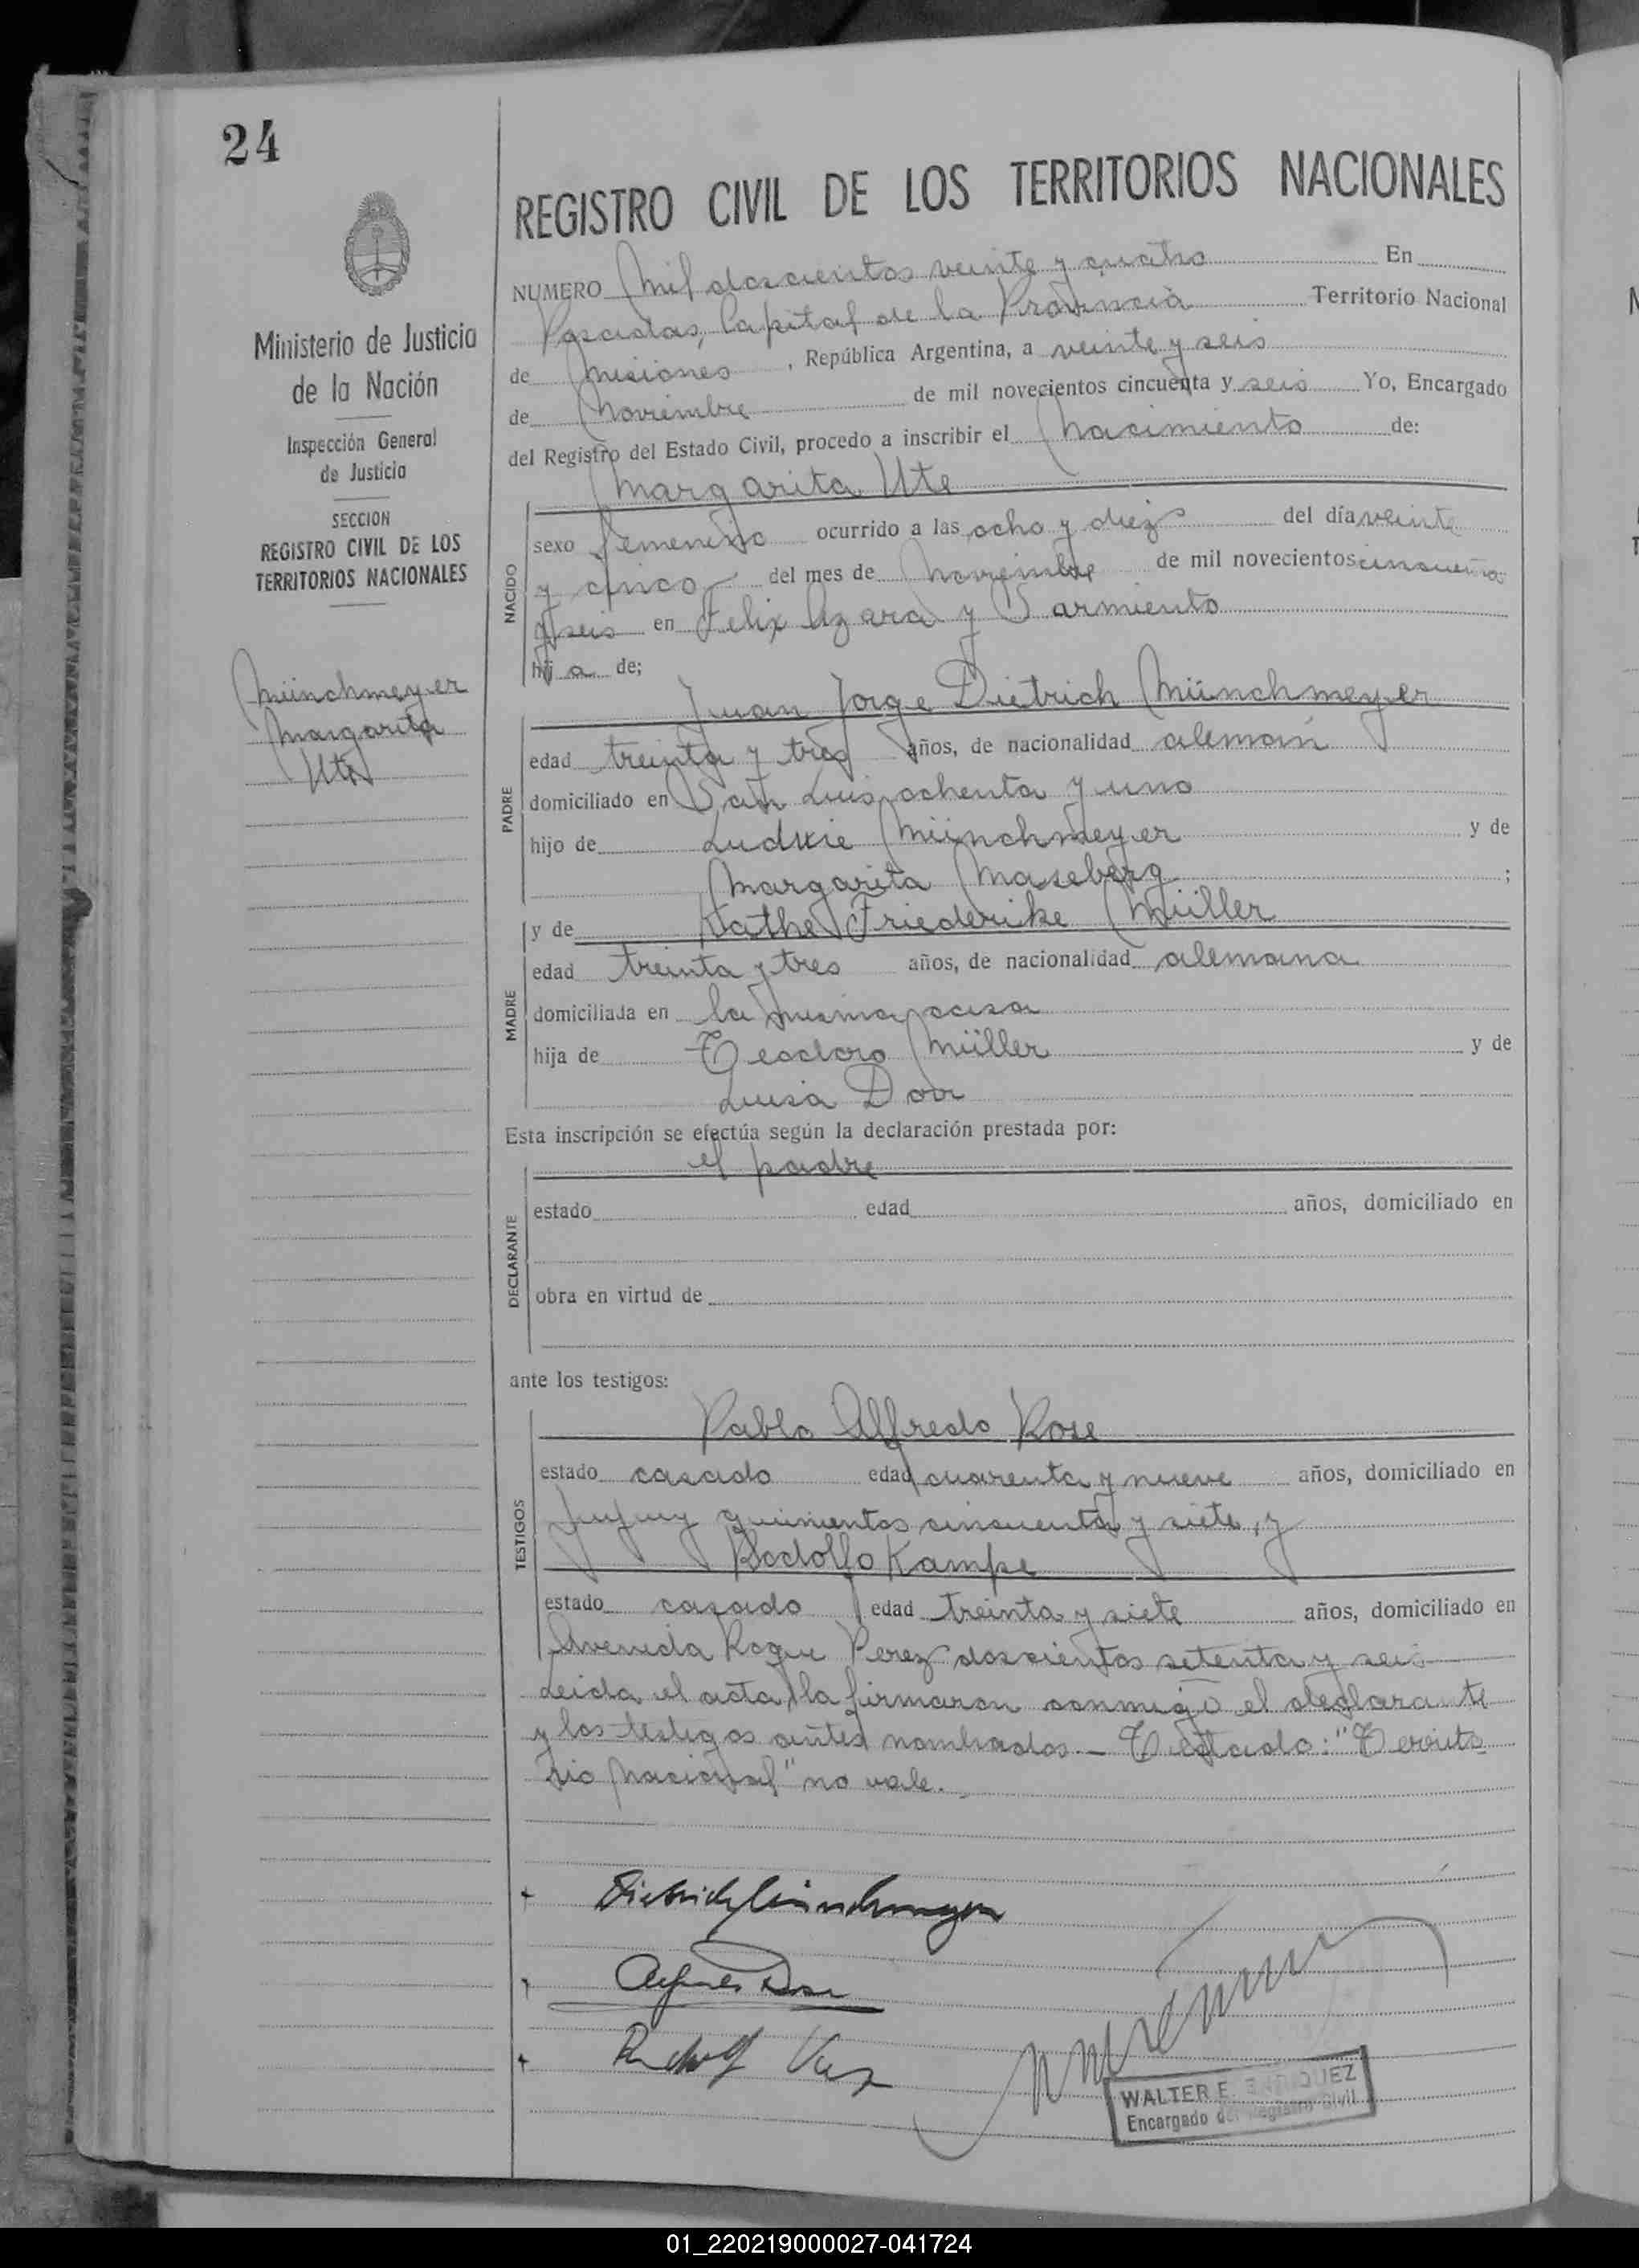 24
REGISTRO CIVIL DE LOS TERRITORIOS NACIONALES
Ministerio de Justicia
de la Nación
Inspección General
de Justicia
SECCION
REGISTRO CIVIL DE LOS
TERRITORIOS NACIONALES
Münchmeyer
Margarita
Ute
NUMERO Mil doscientos veinte y cuatro En
Posadas, Capital de la Provincia Territorio Nacional
de Misiones, República Argentina, a veinte y seis
de Noviembre de mil novecientos cincuenta y seis Yo, Encargado
del Registro del Estado Civil, procedo a inscribir el Nacimiento de:
Margarita Ute
NACIDO
sexo Femenino ocurrido a las ocho y diez del día veinte
y cinco del mes de Noviembre de mil novecientos cincuenta
y seis en Felix Azara y Sarmiento
hija de;
Juan Jorge Dietrich Münchmeyer
PADRE
edad treinta y tres años, de nacionalidad alemán
domiciliado en San Luis ochenta y uno
hijo de Münchmeyer y de
Margarita Maseberg;
y de Kathe Friederike Müller
MADRE
edad treinta y tres años, de nacionalidad alemana
domiciliada en la misma casa
hija de Teodoro Müller y de
Luisa
Esta inscripción se efectúa según la declaración prestada por:
el padre
DECLARANTE
estado edad años, domiciliado en
obra en virtud de
ante los testigos:
TESTIGOS
Pablo Alfredo Rose
estado casado edad cuarenta y nueve años, domiciliado en
Jujuy quinientos cincuenta y siete, y
Rodolfo Kampe
estado casado edad treinta y siete años, domiciliado en
Avenida Roque Perez doscientos setenta y seis
Leida el acta, la firmaron conmigo el declarante
y los testigos antes nombrados.- Testado: "Territo
rio Nacional" no vale.
WALTER E. ENRIQUEZ
Encargado del Registro Civil
01_220219000027-041724